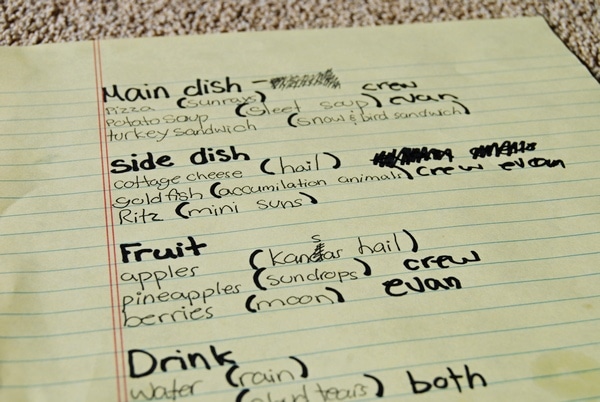 Main dish - crew
pizza (sunrays)
potato soup (sleet soup) evan
turkey sandwich (snow & bird sandwich)
side dish
cottage cheese (hail)
goldfish (accumilation animals) crew evan
Ritz (mini suns)
Fruit
apples (kansas hail)
pineapples (sundrops) crew
berries (moon) evan
Drink
water (rain)
tears) both